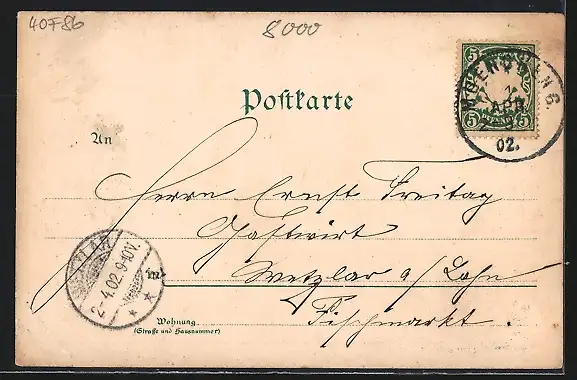 40F86
8000
5 5
PFENNIG
5 5
WUERZBURG.
1
APR
02.
Postkarte
An
Herrn Ernst Freitag
Gastwirt
in Wetzlar a/Lahn
Fischmarkt.
2.4.02.9-10V.
* *
Wohnung
(Straße und Hausnummer)